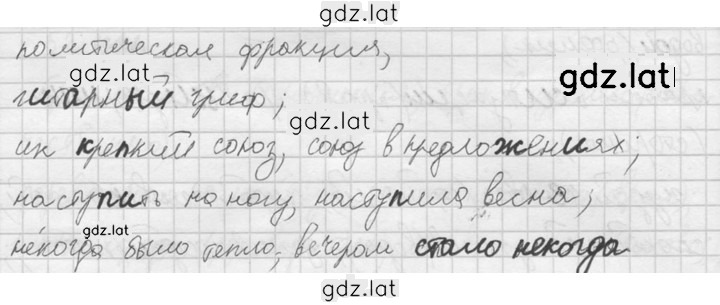 gdz.lat
политическая фракция,
gdz.lat
gdz.lat
гитарный гриф;
gdz.lat
их крепкий союз, союз в предложениях;
gdz.lat
наступить на ногу, наступила весна;
gdz.lat
не́когда было тепло; вечером стало некогда
gdz.lat